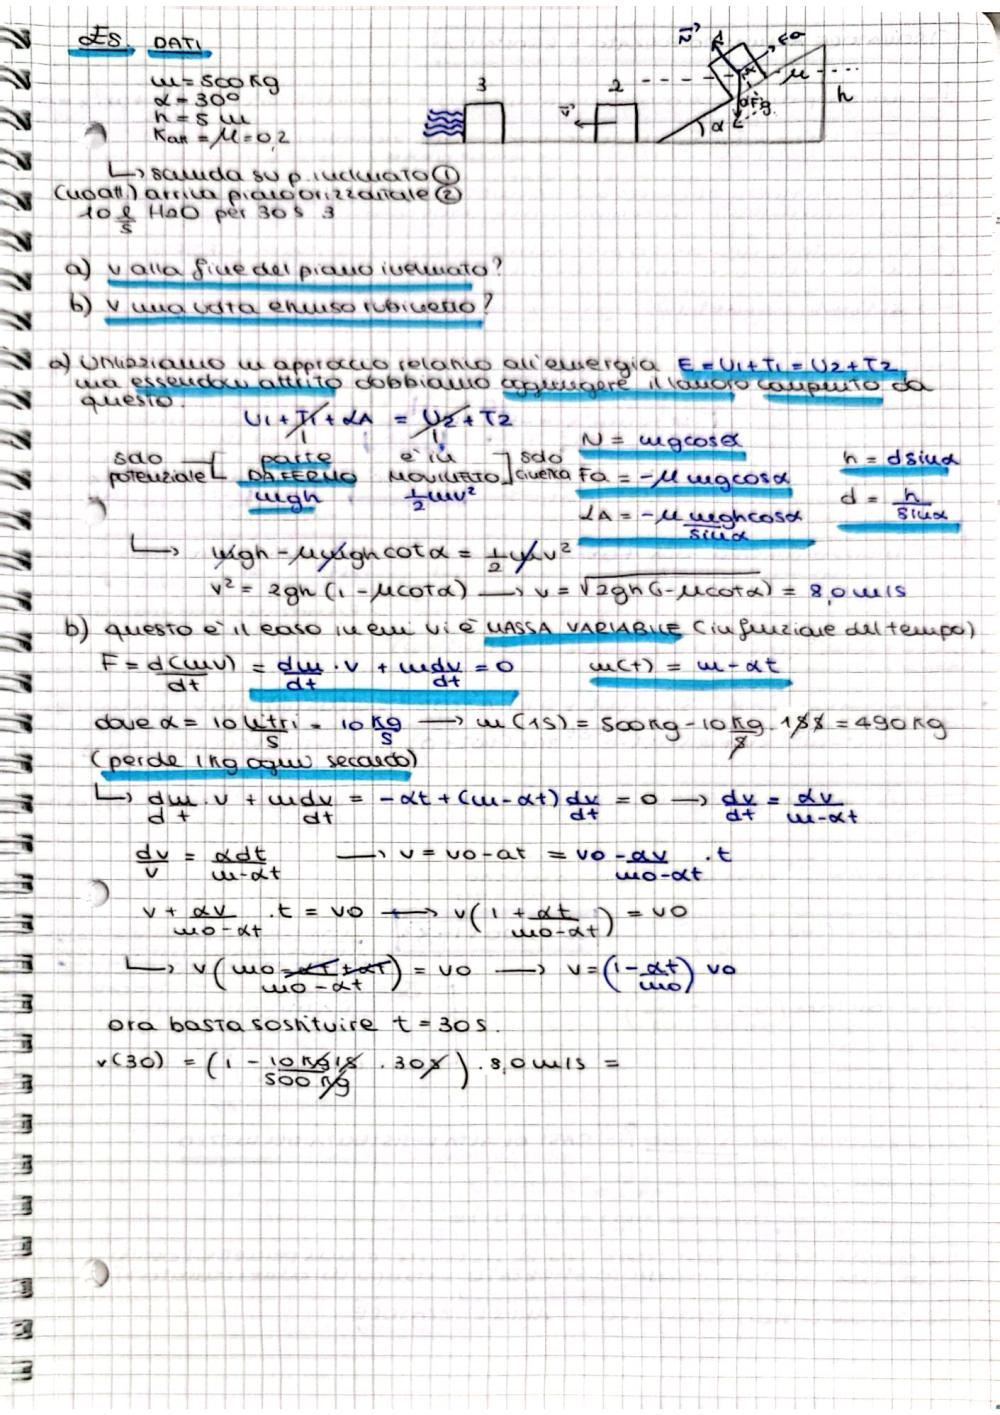 ES. DATI
m = 500 Kg
α = 30°
h = 5 m
Katt = μ = 0,2
3
2
v
N
Fa
μ
h
Fg
α
↳ scivola su p. inclinato ①
(no att.) arriva piano orizzontale ②
10 l/s H2O per 30 s 3
a) v alla fine del piano inclinato?
b) v una volta chiuso rubinetto?
a) Utilizziamo un approccio relativo all'energia E = U1 + T1 = U2 + T2
ma essendoci attrito dobbiamo aggiungere il lavoro compiuto da
questo.
U1 + T1 + LA = U2 + T2
solo potenziale [ parte DA FERMO mgh
è in MOVIMENTO ] solo cinetica
1/2 mv²
N = mgcosα
Fa = -μ mgcosα
LA = -μ mghcosα/sinα
h = dsinα
d = h/sinα
↳ mgh - μmghcotα = 1/2 mv²
v² = 2gh (1 - μcotα) → v = √2gh(1-μcotα) = 8,0 m/s
b) questo è il caso in cui vi è MASSA VARIABILE (in funzione del tempo)
F = d(mv)/dt = dm/dt · v + mdv/dt = 0 m(t) = m - αt
dove α = 10 litri/s = 10 Kg/s → m(1s) = 500Kg - 10 Kg/s · 1s = 490Kg
(perde 1Kg ogni secondo)
↳ dm/dt · v + mdv/dt = -αt + (m-αt) dv/dt = 0 → dv/dt = αv/m-αt
dv/v = αdt/m-αt → v = v0 - at = v0 - αv/m0-αt · t
v + αv/m0-αt · t = v0 → v(1 + αt/m0-αt) = v0
↳ v(m0-αt+αt/m0-αt) = v0 → v = (1 - αt/m0) v0
ora basta sostituire t = 30s.
v(30) = (1 - 10 Kg/s/500 Kg · 30s) · 8,0 m/s =